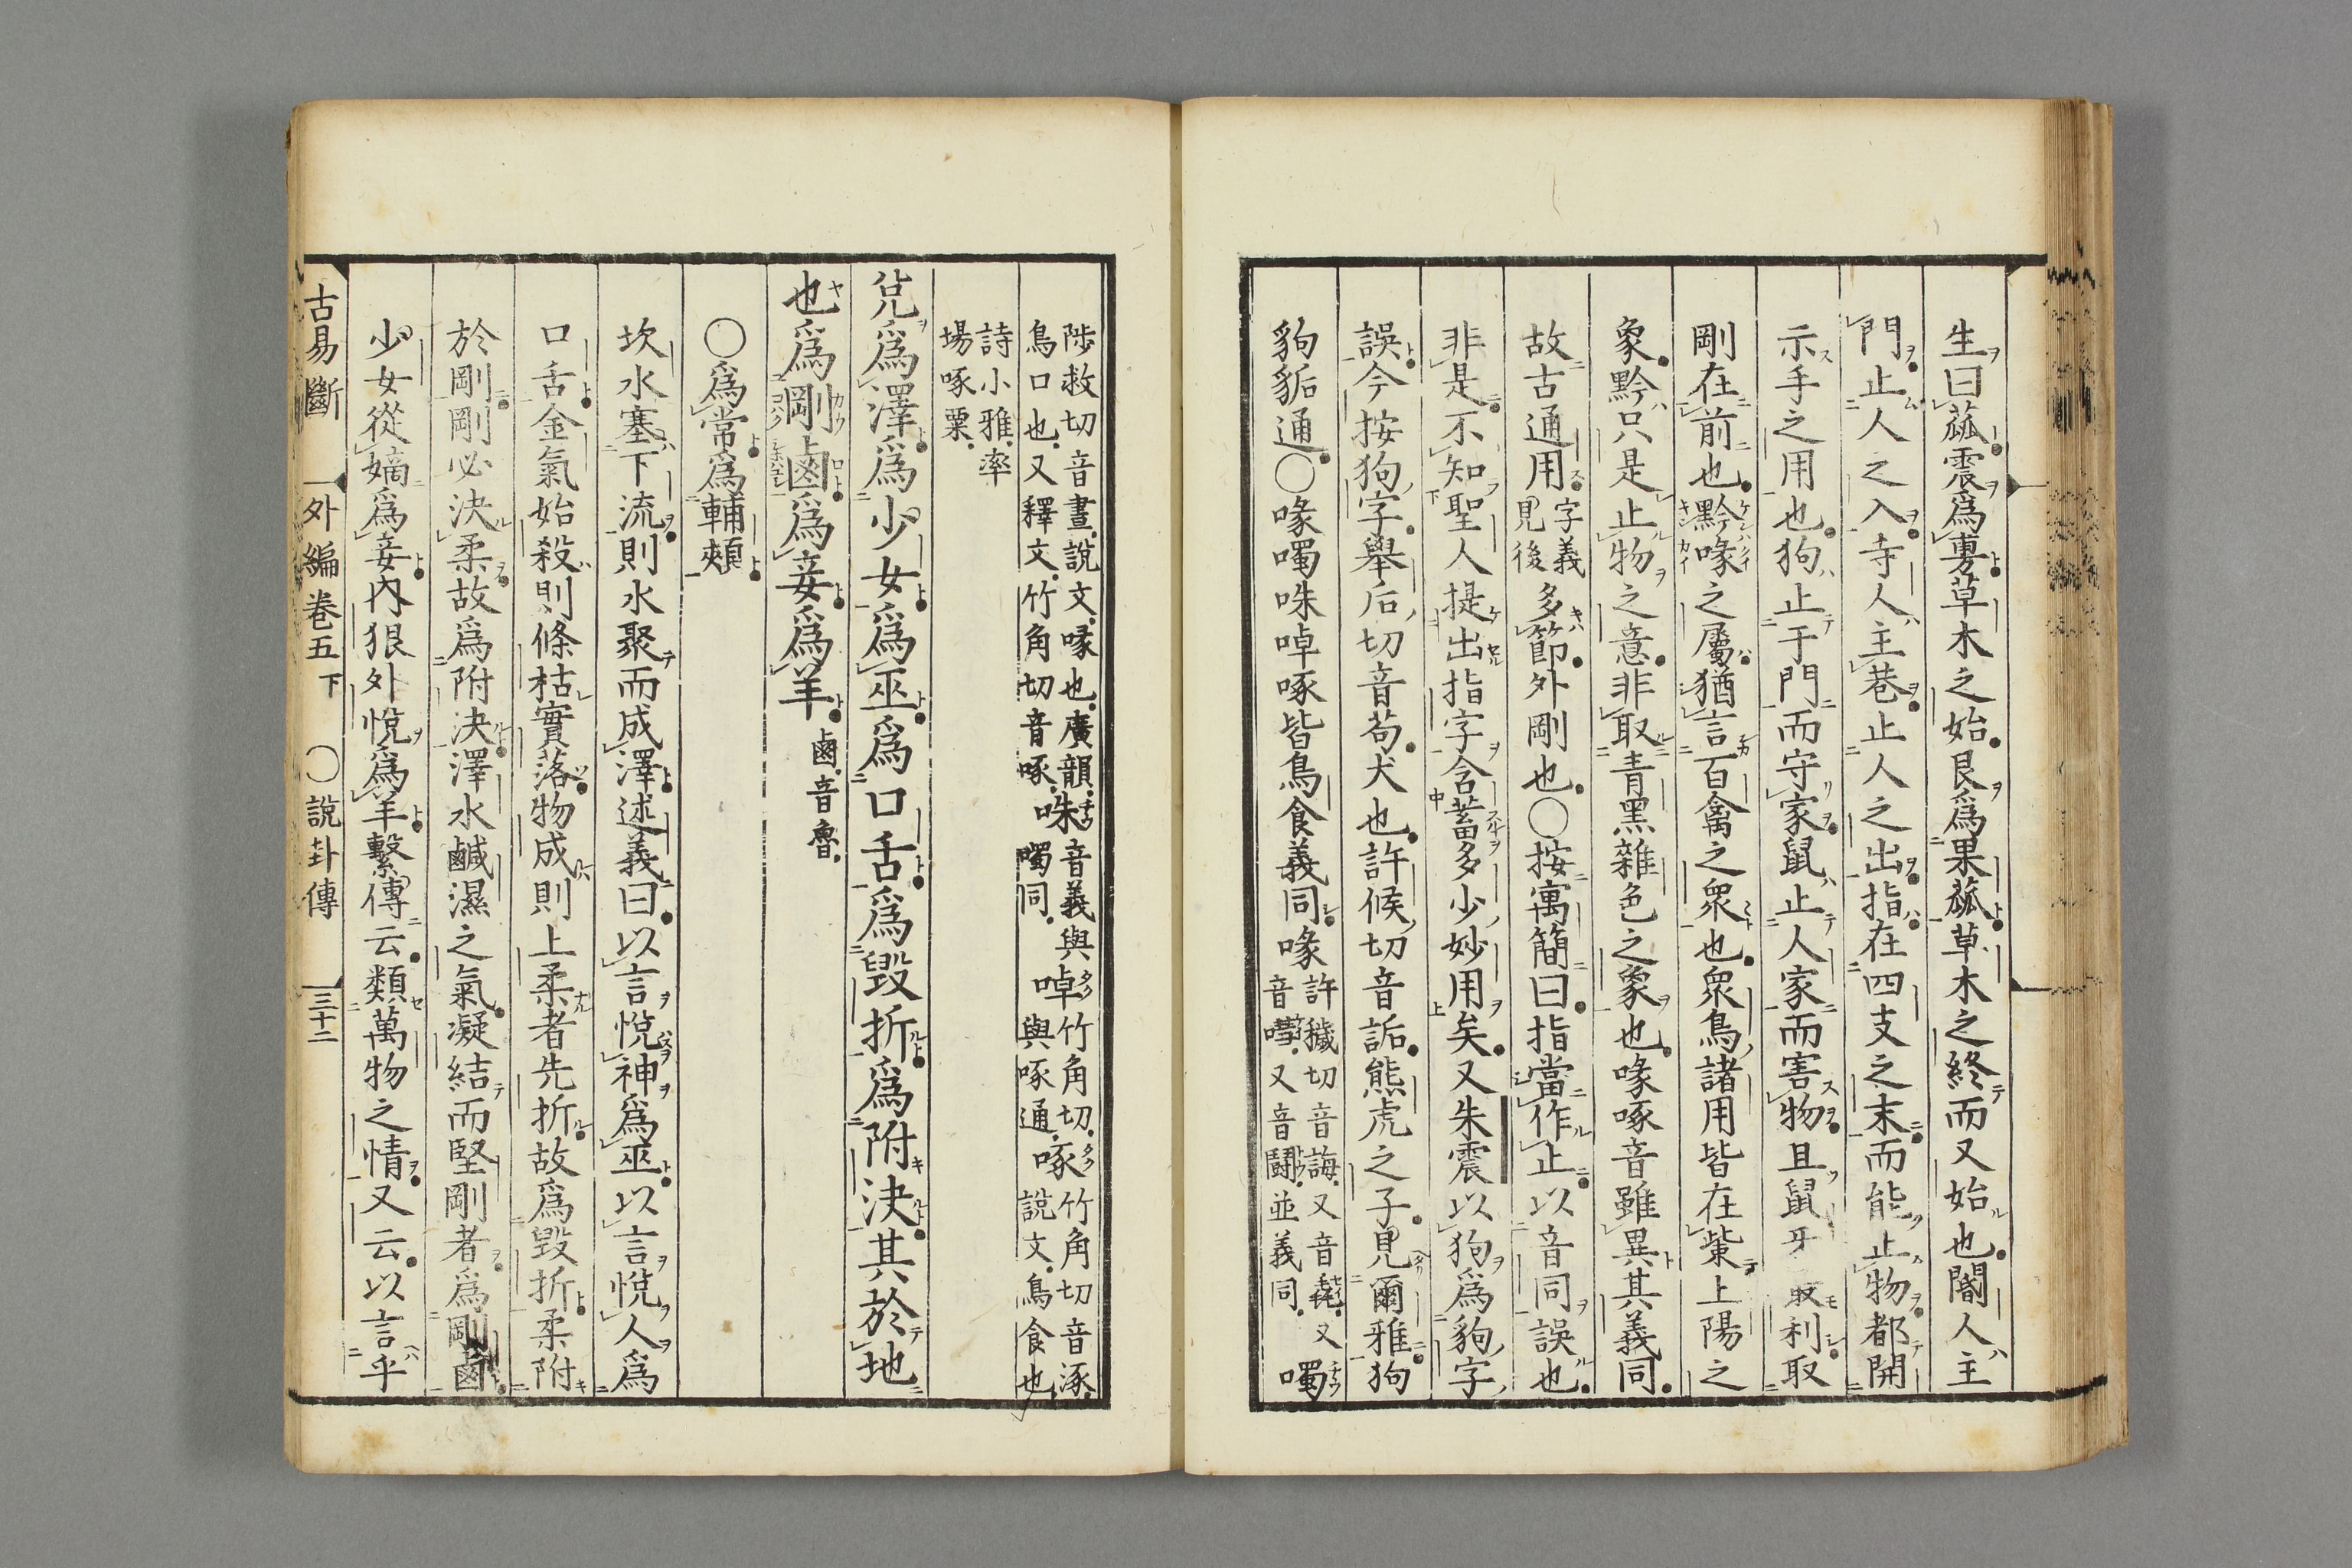 生曰蓏震爲旉草木之始艮爲果蓏草木之終而又始也閽人主
門止人之入寺人主巷止人之出指在四支之末而能止物都開
示手之用也狗止于門而守家鼠止人家而害物且鼠牙取利取
剛在前也黔喙之屬猶言百禽之衆也衆鳥諸用皆在觜上陽之
象黔只是止物之意非取青黑雜色之象也喙啄音雖異其義同
故古通用字義見後多節外剛也○按寓簡曰指當作止以音同誤也
非是不知聖人提出指字含蓄多少妙用矣又朱震以狗爲豿字
誤今按狗字舉后切音苟犬也豿許候切音詬熊虎之子見爾雅狗
豿豞通○喙噣咮啅啄皆鳥食義同喙許穢切音誨又音毳又音嘒又音鬭並義同噣
陟救切音晝說文喙也廣韻咮音義與啅竹角切啄竹角切音涿
鳥口也又釋文竹角切音啄噣同與啄通說文鳥食也
詩小雅率
場啄粟
兌爲澤爲少女爲巫爲口舌爲毀折爲附決其於地
也爲剛鹵爲妾爲羊鹵音魯
○爲常爲輔頰
坎水塞下流則水聚而成澤述義曰以言悅神爲巫以言悅人爲
口舌金氣始殺則條枯實落物成則上柔者先折故爲毀折柔附
於剛剛必決柔故爲附決澤水鹹濕之氣凝結而堅剛者爲剛鹵
少女從嫡爲妾內狠外悅爲羊繫傳云類萬物之情又云以言乎
古易斷 外編卷五下 ○說卦傳 三十二